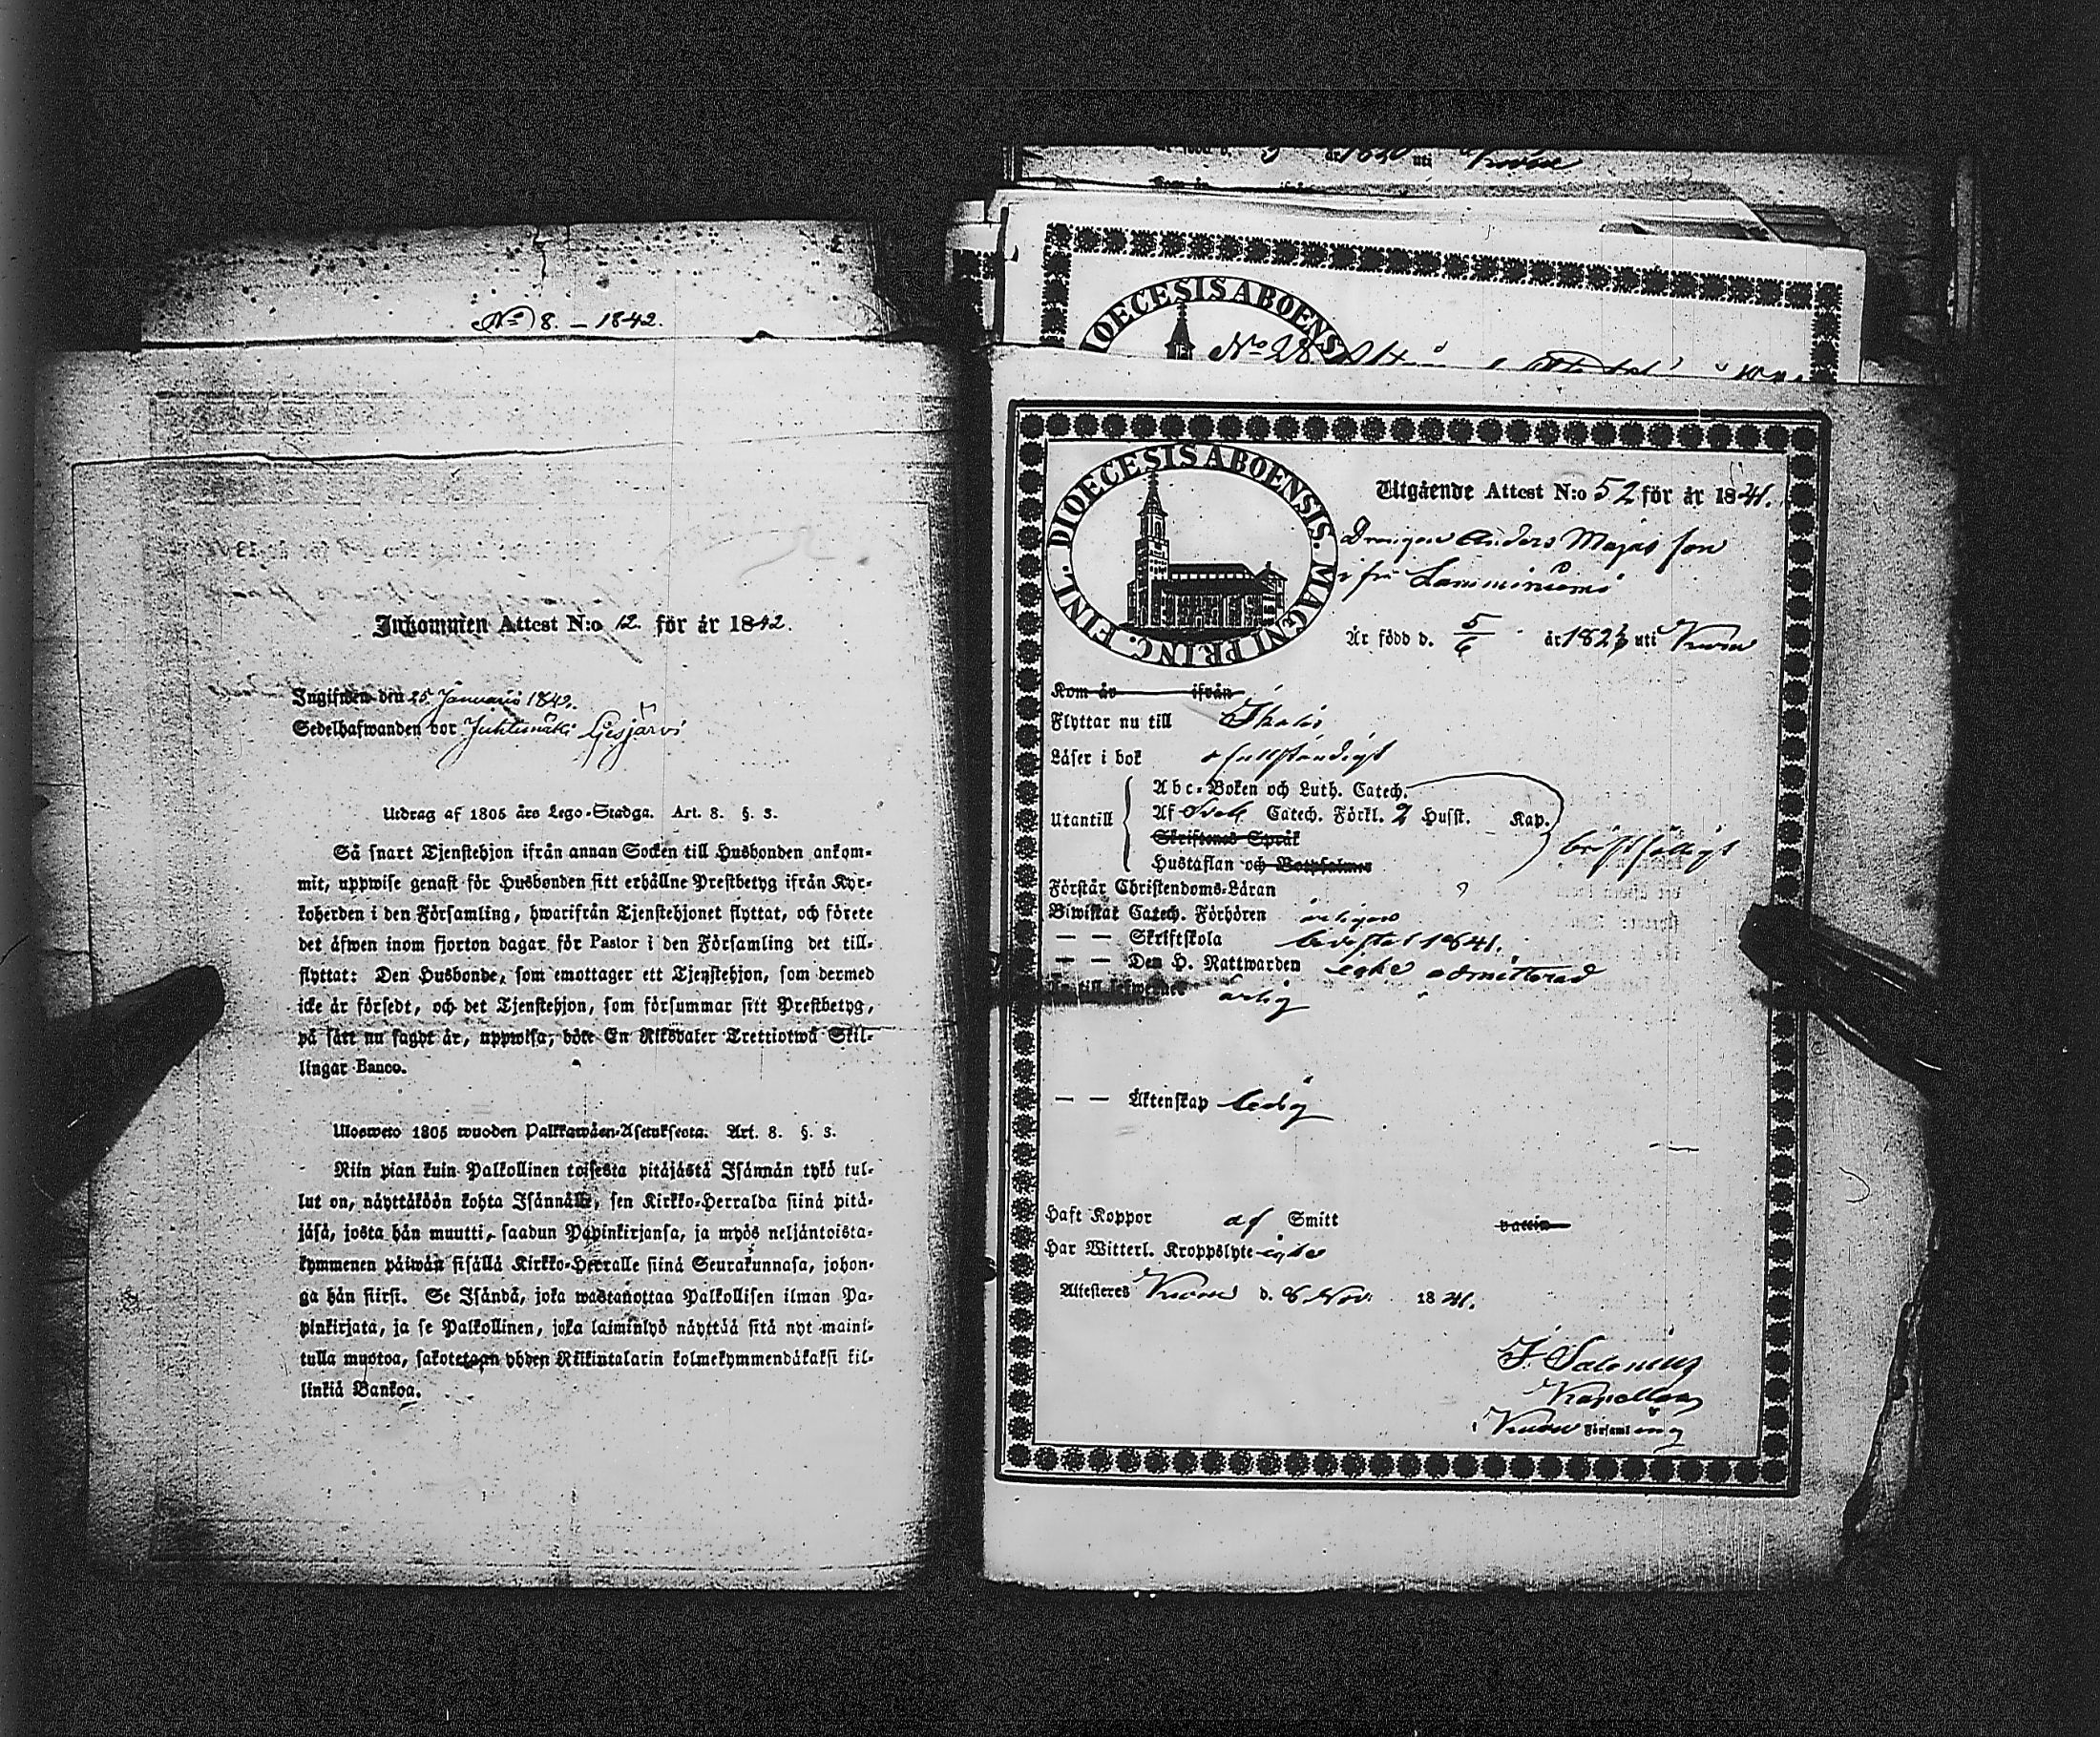 No 8. – 1842.
Inkommen Attest N:o 12. för år 1842.
Ingifwen den 25 Januarii 1842.
Sedelhafwanden bor Juhtimäki
Utdrag af 1805 års Lego-Stadga. Art. 8. §. 3.
Så snart Tjenstehjon ifrån annan Socken till Husbonden ankom-
mit, uppwise genast för Husbonden sitt erhållne Prestbetyg ifrån Kyr-
koherden i den Församling, hwarifrån Tjenstehjonet flyttat, och förete
det äfwen inom fjorton dagar för Pastor i den Församling det till-
flyttat: Den Husbonde, som emottager ett Tjenstehjon, som dermed
icke är försedt, och det Tjenstehjon, som försummar sitt Prestbetyg,
på sätt nu sagdt är, uppwisa, böte En Riksdaler Trettiotwå Skil-
lingar Banco.
Ulosweto 1805 wuoden Palkkawäen-Asetuksesta. Art. 8. §. 3.
Niin pian kuin Palkollinen toisesta pitäjästä Isännän tykö tul-
lut on, näyttäköön kohta Isännälle, sen Kirkko-Herralda siinä pitä-
jäsä, josta hän muutti, saadun Papinkirjansa, ja myös neljäntoista-
kymmenen päiwän sisällä Kirkko-Herralle siinä Seurakunnasa, johon-
ga hän siirsi. Se Isändä, joka wastanottaa Palkollisen ilman Pa-
pinkirjata, ja se Palkollinen, joka laiminlyö näyttää sitä nyt maini-
tulla muotoa, sakotetaan yhden Riikintalarin kolmekymmendäkaksi kil-
linkiä Bankoa.
är född d. 5 år 1820 uti
Kom år ifrån
DIOECESIS ABOENS
No 28
DIOECESIS ABOENSIS. MAGNI PRINC. FINL.
Utgående Attest N:o 52 för år 1841.
Drengen Anders Majas son
ifrån Lamminiemi
Är född d. 5/6 år 1823 uti
Kom år ifrån
Flyttar nu till Ikalis
Läser i bok ofullständigt
Utantill
Abc-Boken och Luth. Catech.
Af Sveb. Catech. Förkl. 2 Husst. Kap.
Skriftenes Språk
Hustaflan och Botpsalmer
bristfälligt
Förstår Christendoms-Läran
Biwistat Catech. Förhören årligen
— — Skriftskola bevistat 1841.
— — Den H. Nattwarden icke admitterad
Är till lefwerne ärlig
— — Äktenskap ledig
Haft Koppor af Smitt vaccin
Har Witterl. Kroppslyte icke
Attesteres d. 8 Nov. 1841.
F. Salenius
Kapellan
i Församling